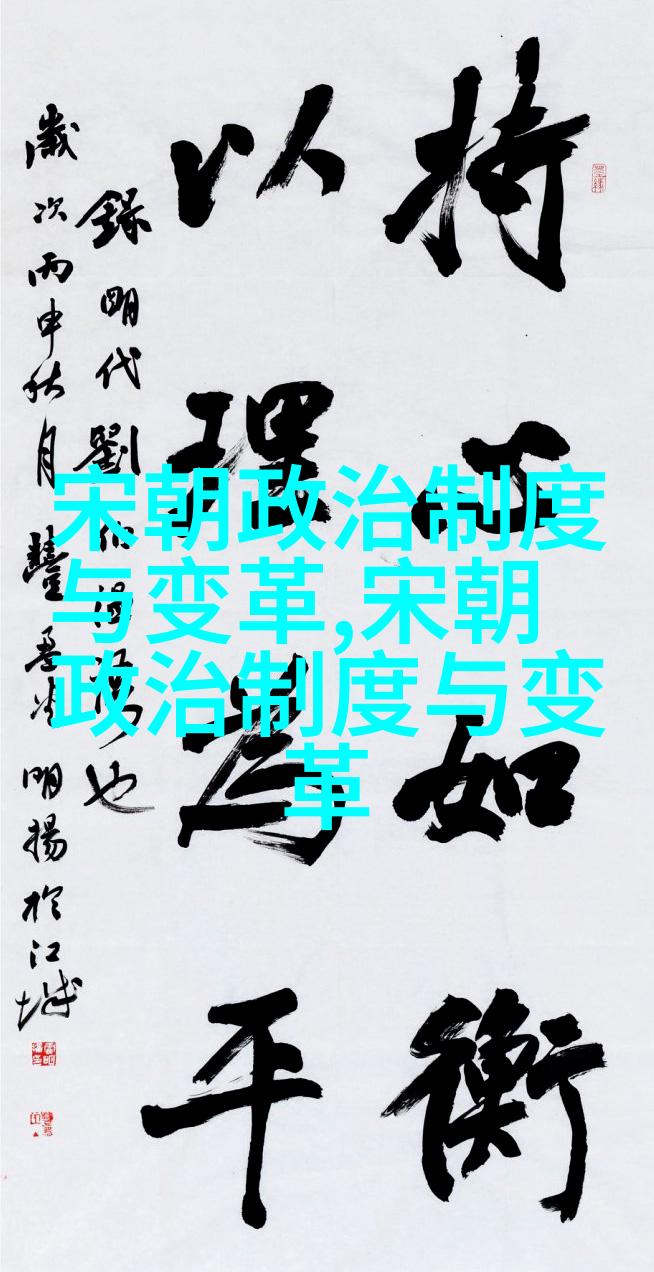 持心如衡
以理為平
錄明代劉伯溫也
歲次丙申秋月明揚於江城
宋朝政治制度
与变革,宋朝
政治制度与变
革